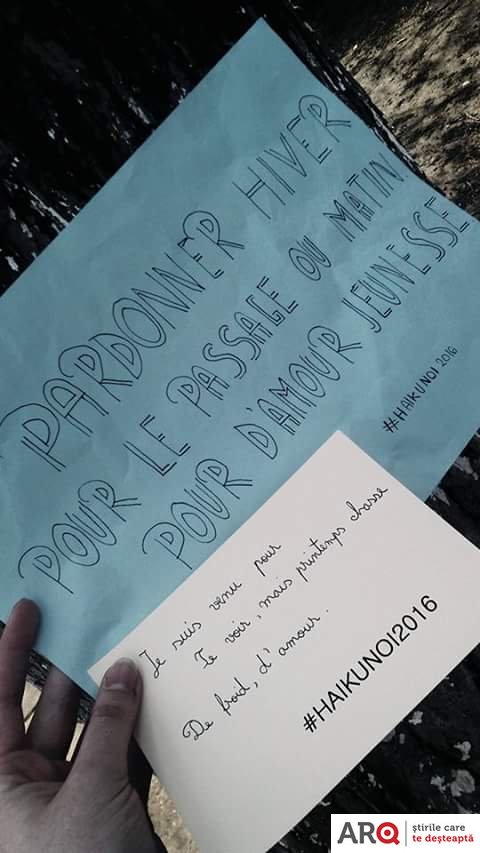 PARDONNER HIVER
POUR LE PASSAGE OU MATIN
POUR D'AMOUR JEUNESSE
#HAIKUNOI 2016
Je suis venu pour
Te voir, mais printemps chasse
De froid, d'amour.
#HAIKUNOI2016
ARQ
știrile care
te deșteaptă